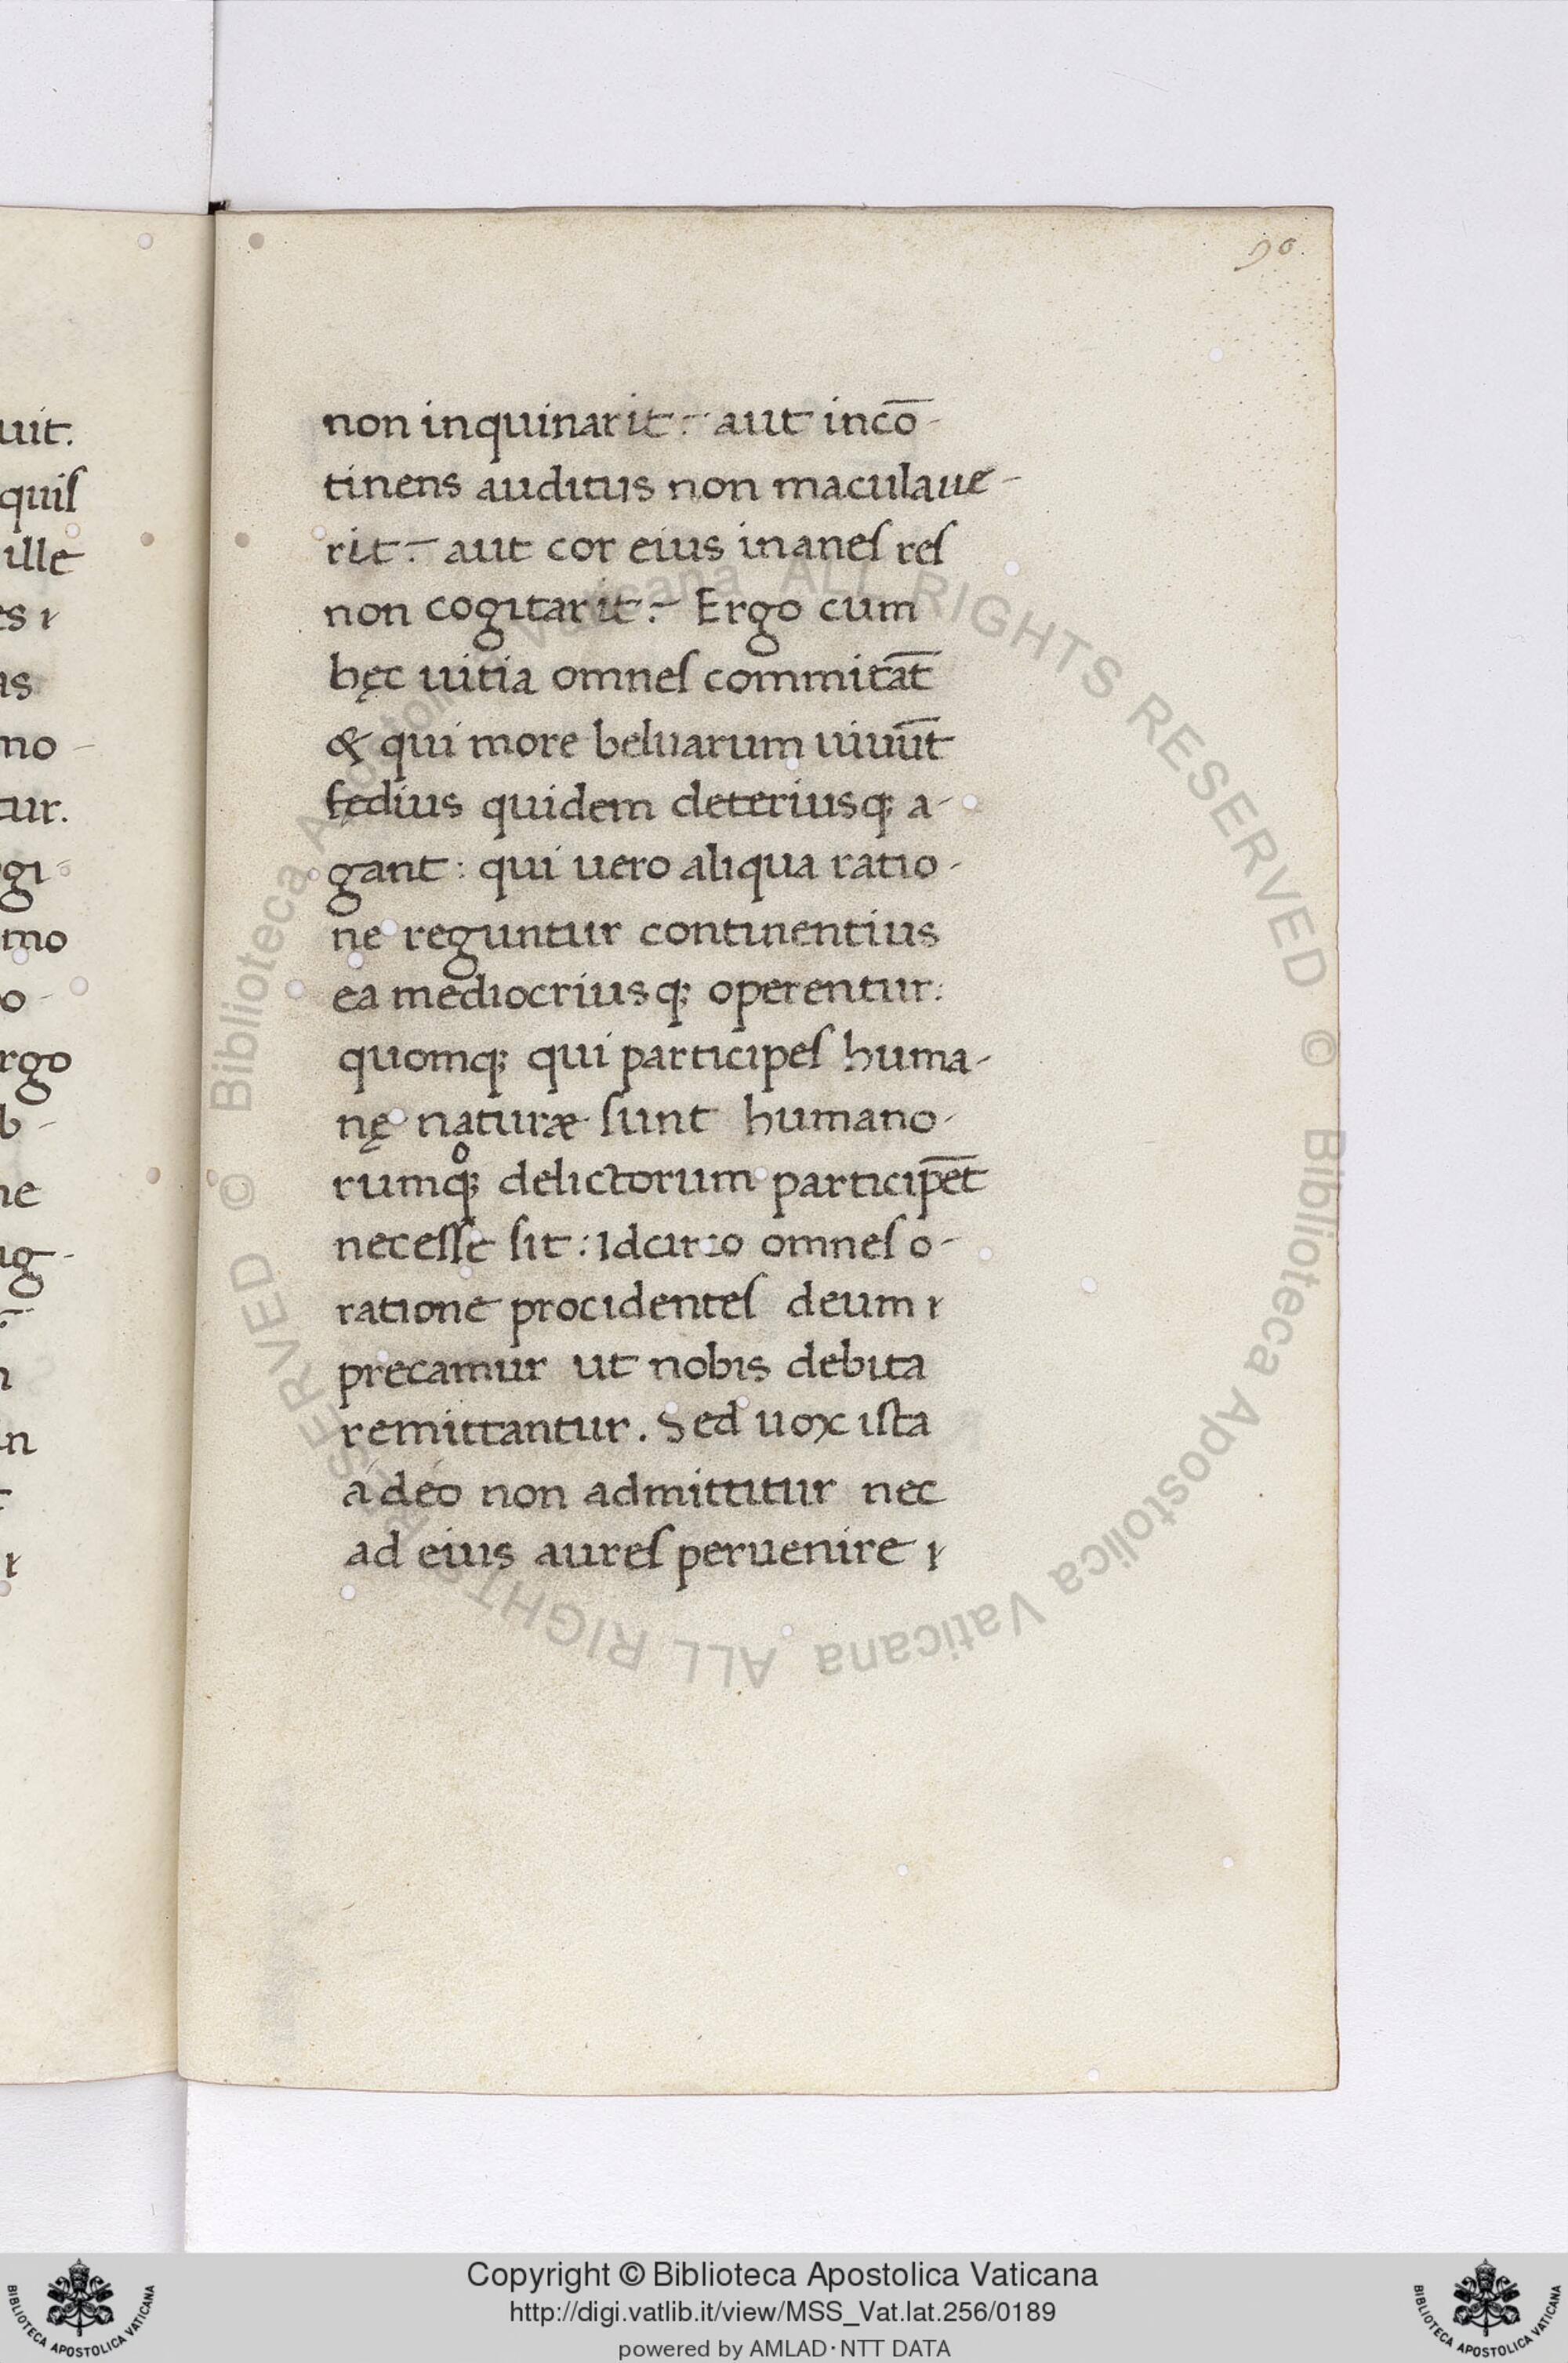 90.
non inquinarit: aut incō-
tinens auditus non maculaue-
rit: aut cor eius inanes res
non cogitarit: Ergo cum
hęc uitia omnes commitāt
& qui more beluarum uiuūt
fędius quidem deteriusq; a-
gant: qui uero aliqua ratio-
ne reguntur continentius
ea mediocriusq; operentur:
quomq; qui participes huma-
nę naturæ sunt humano-
rumq; delictorum participēt
necesse sit: Idcirco omnes o-
ratione procidentes deum
precamur ut nobis debita
remittantur. Sed uox ista
á déo non admittitur nec
ad eius aures peruenire
uit.
quis
ille
es
as
mo-
tur.
gi-
mo
o-
rgo
b-
ne
ug-
n
Biblioteca Apostolica Vaticana ALL RIGHTS RESERVED © Biblioteca Apostolica Vaticana ALL RIGHTS RESERVED ©
Copyright © Biblioteca Apostolica Vaticana
http://digi.vatlib.it/view/MSS_Vat.lat.256/0189
powered by AMLAD・NTT DATA
BIBLIOTECA APOSTOLICA VATICANA
BIBLIOTECA APOSTOLICA VATICANA